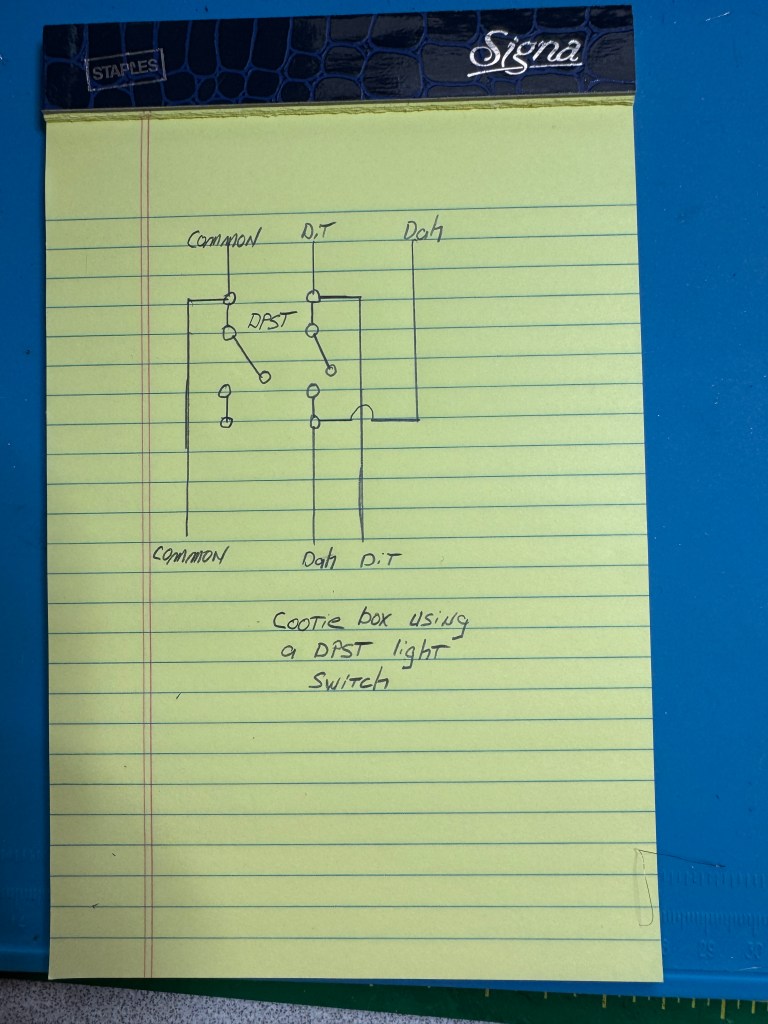 STAPLES
Signa
COMMON DiT Dah
DPST
COMMON Dah DiT
Cootie box using
a DPST light
Switch